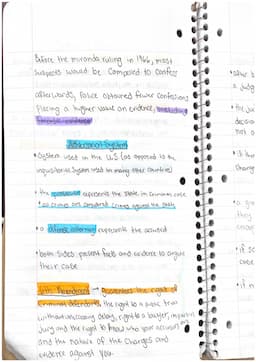 Before the miranda ruling in 1966, most
suspects would be compelled to confess
afterwards, Police obtained fewer confessions
Placing a higher value on evidence, including
forensic evidence
Adversarial System
• System used in the US (as opposed to the
inquisitorial System used in many other countries)
• the represents the State in criminal case
* all crimes are considered crimes against the state
• a defense attorney represents the accused
• both sides present facts and evidence to argue
their case
Sixth Amendment - Guarantees the rights of
Criminal defendants, the right to a public trial
without unnecessary delay, right to a lawyer, impartial
Jury and the right to know who your accusers are
and the nature of the Charges and
evidence against you.